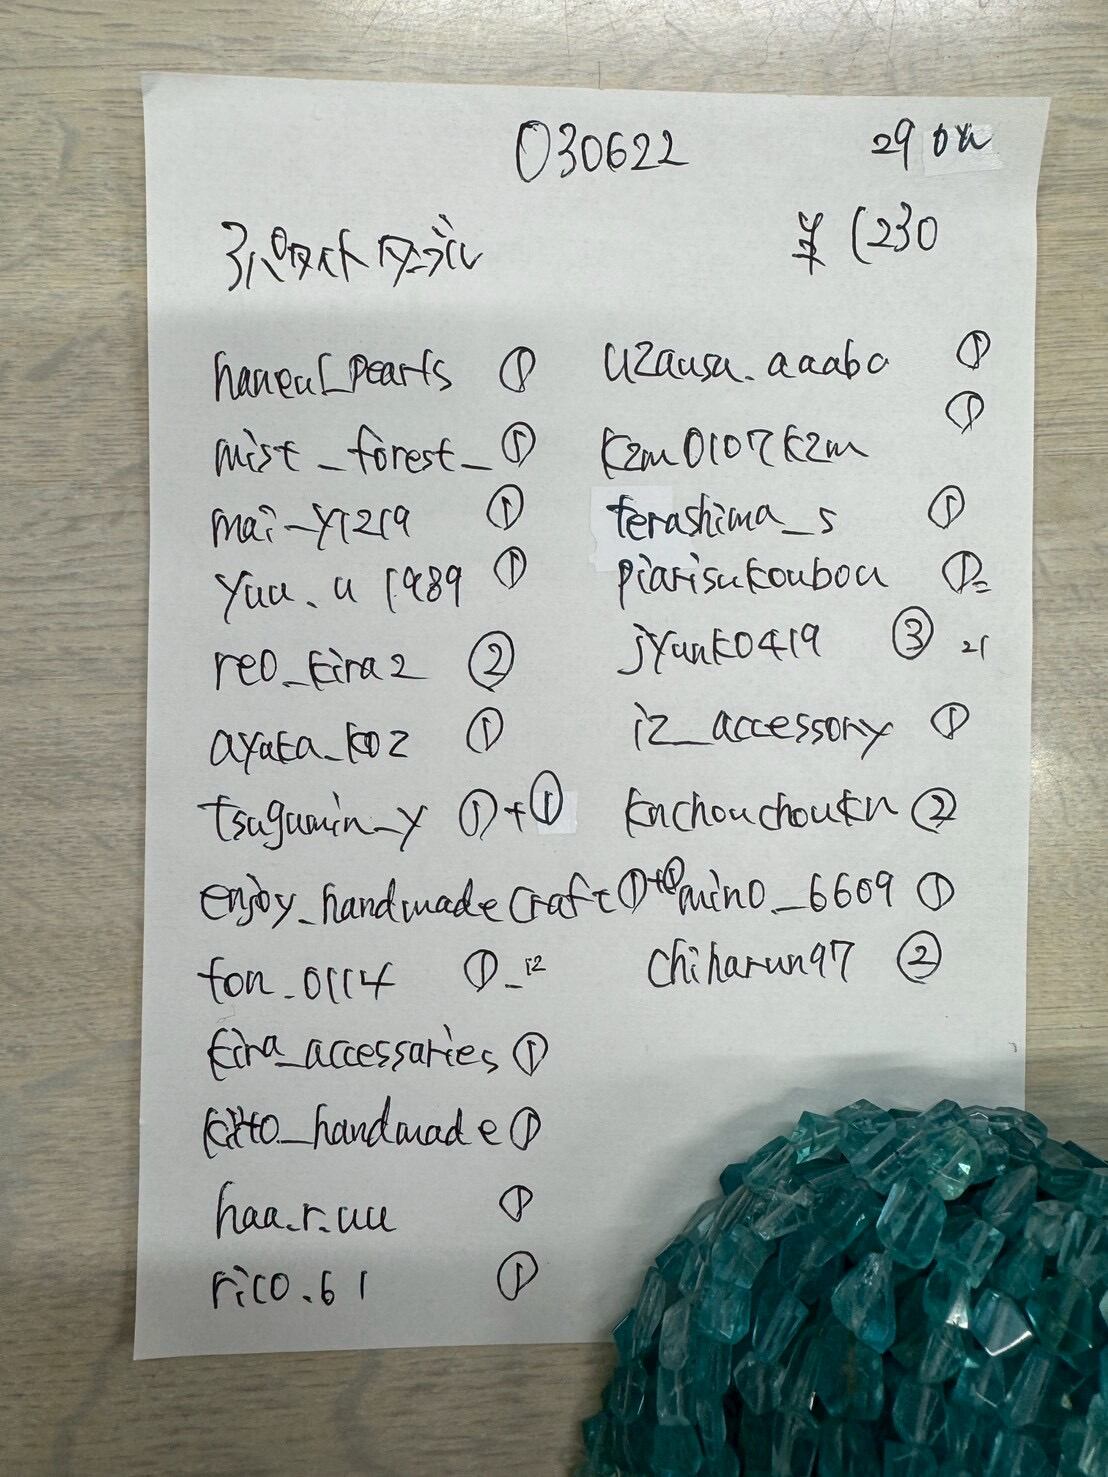 030622
29
¥ 1230
haneul_pearls ①
mist_forest_ ①
mai_y1219 ①
yuu.u1989 ①
reo_kira2 ②
ayaka_koz ①
tsugumin_y ①+①
enjoy_handmadecraft ①+①
ton_0114 ①_12
kira_accessaries ①
kito_handmade ①
haa.r.uu ①
rico.61 ①
uzausu.aaabo ①
kzm0107kzm ①
terashima_s ①
piarisukoubou ①
jyunko419 ③ 21
iz_accessory ①
knchouchoukn ②
mino._6609 ①
chiharun97 ②